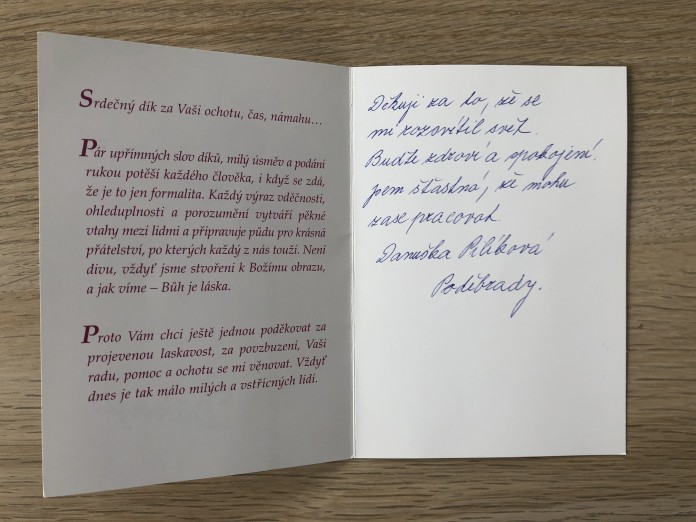 Srdečný dík za Vaši ochotu, čas, námahu…
Pár upřímných slov díků, milý úsměv a podání
rukou potěší každého člověka, i když se zdá,
že je to jen formalita. Každý výraz vděčnosti,
ohleduplnosti a porozumění vytváří pěkné
vtahy mezi lidmi a připravuje půdu pro krásná
přátelství, po kterých každý z nás touží. Není
divu, vždyť jsme stvořeni k Božímu obrazu,
a jak víme – Bůh je láska.
Proto Vám chci ještě jednou poděkovat za
projevenou laskavost, za povzbuzení, Vaši
radu, pomoc a ochotu se mi věnovat. Vždyť
dnes je tak málo milých a vstřícných lidí.
Děkuji za to, že se
mi rozsvítil svět.
Buďte zdraví a spokojení.
jsem šťastná, že mohu
zase pracovat
Danuška Pilíková
Poděbrady.